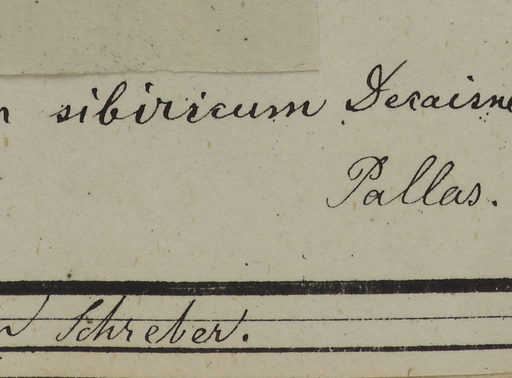 sibiricum Decaisne
Pallas.
Schreber.